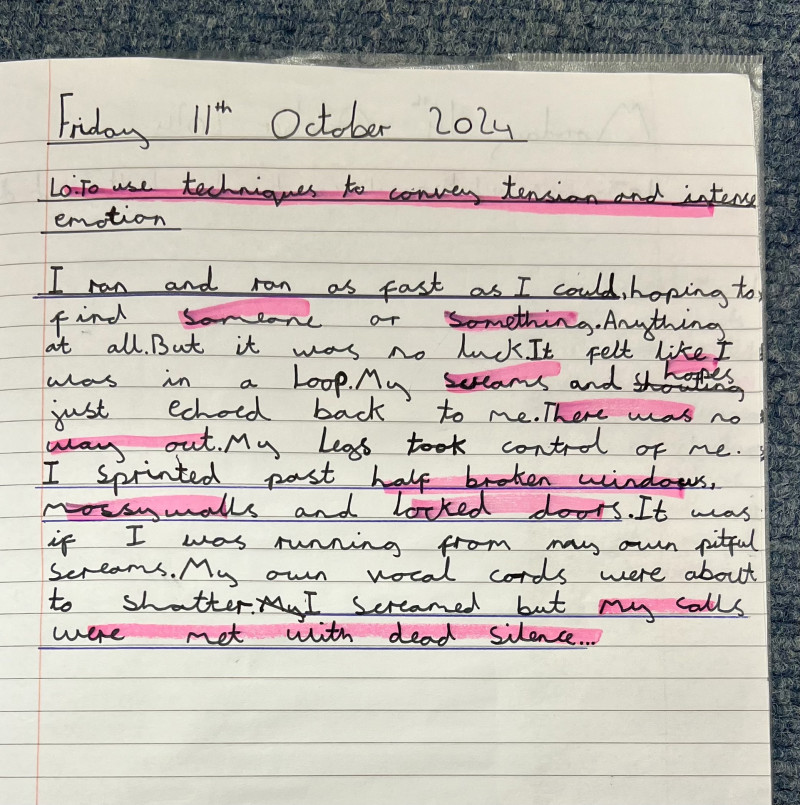 Friday 11th October 2024
LO:To use techniques to convey tension and intense
emotion
I ran and ran as fast as I could, hoping to
find someone or something. Anything
at all. But it was no luck. It felt like I
was in a loop. My screams and shouting hopes
just echoed back to me. There was no
way out. My legs took control of me.
I sprinted past half broken windows,
mossy walls and locked doors. It was
if I was running from may own pitful
screams. My own vocal cords were about
to shatter. My I screamed but my calls
were met with dead silence...